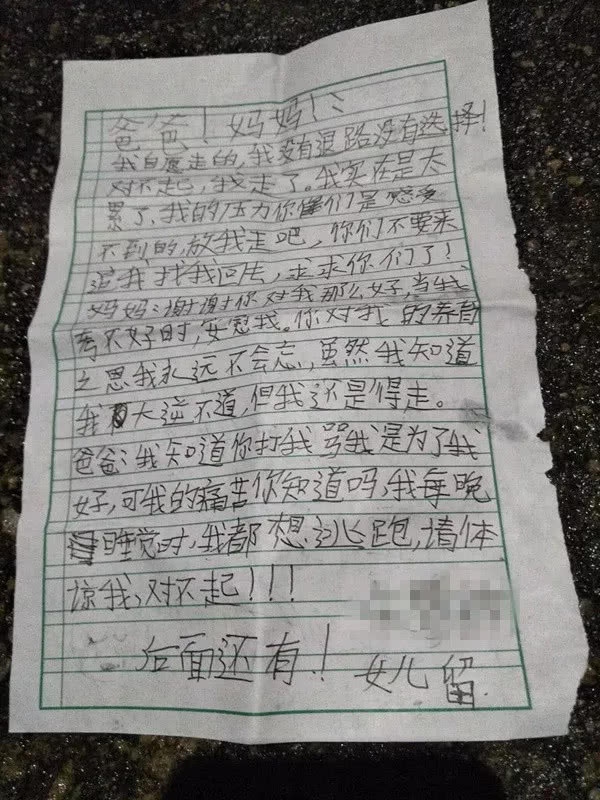 爸爸！妈妈！
我自愿走的，我没有退路没有选择！
对不起，我走了。我实在是太
累了，我的压力你们是感受
不到的，放我走吧，你们不要来
追我找我回去，求求你们了！
妈妈：谢谢你对我那么好，当我
考不好时，安慰我。你对我的养育
之恩我永远不会忘，虽然我知道
我大逆不道，但我还是得走。
爸爸：我知道你打我骂我是为了我
好，可我的痛苦你知道吗，我每晚
睡觉时，我都想逃跑，请体
谅我，对不起！！！
后面还有！
女儿留